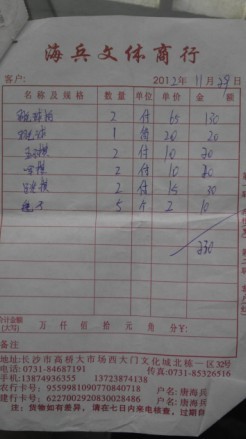 海兵文体商行
客户: 2012年11月29日
名称及规格 数量 单位 单价 金额
2 付 65 130
1 20 20
2 付 10 20
2 付 10 20
2 付 15 30
5 个 2 10
230
合计金额(大写) 万 仟 佰 拾 元 角 分Y:
备注
地址:长沙市高桥大市场西大门文化城北栋一区32号
电话:0731-84687191 传真:0731-85326516
手机:13874936355 13723874138
农行卡号:9559981090770840718 户名:唐海兵
建行卡号:6227002920830028713 户名:唐海兵
注:货物如有差异,请在七日内来电核查,过期